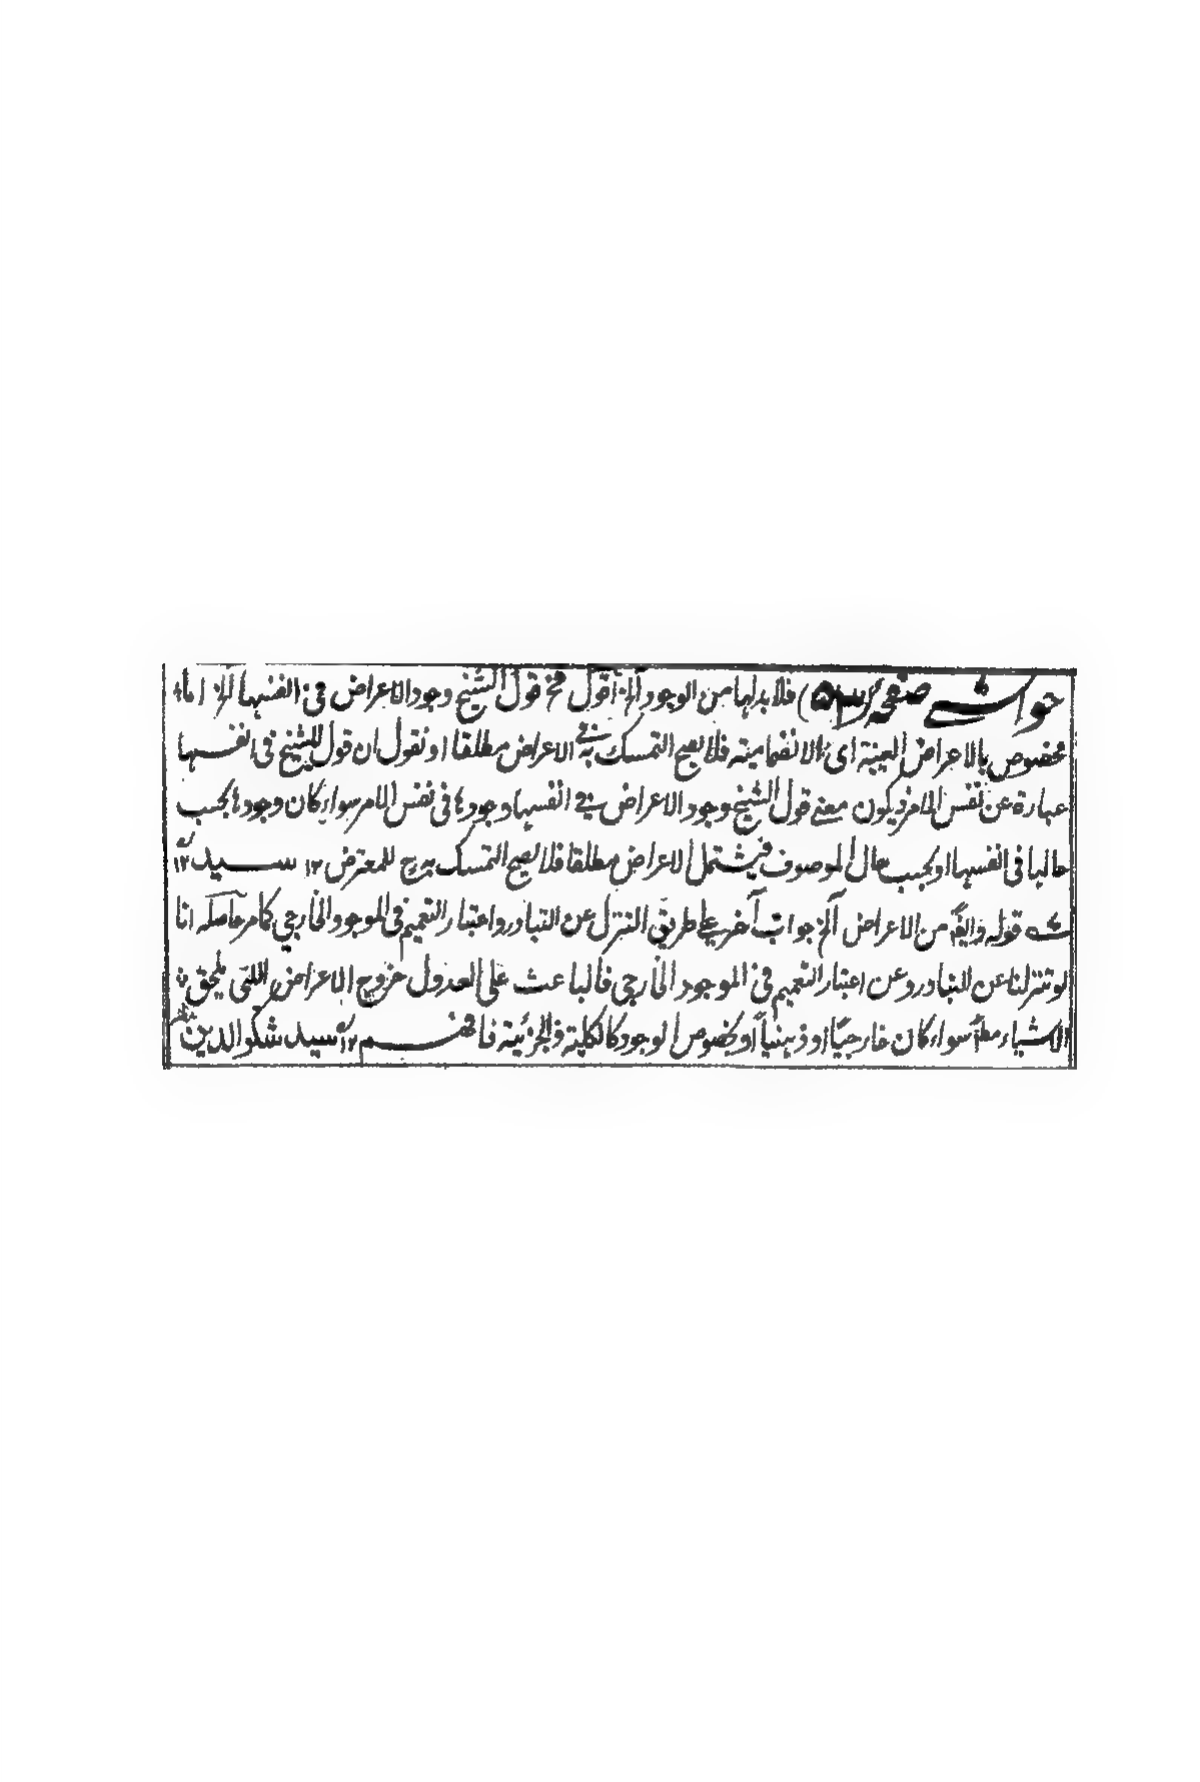 حواشے صفحہ (۵۳) فلا بد لها من الوجود آلخ أقول مخ قول الشيخ وجود الاعراض فی انفسها الخ اما
مخصوص بالاعراض العينية اى الانضمامية فلا يصح التمسك به فے الاعراض مطلقا او نقول ان قول الشيخ فی انفسها
عبارة عن نفس الامر فيكون معنے قول الشيخ وجود الاعراض فے انفسها وجودها فى نفس الامر سواء كان وجودها بحسب
حالها فی انفسها او بحسب حال الموصوف فيشتمل الاعراض مطلقا فلا يصح التمسك به للمعترض ١٢ سيد ١٢
قوله وايضًا من الاعراض آلخ جواب آخر علے طريق التنزل عن التبادر واعتبار التعميم فى الموجود الخارجي كما مر حاصله انا
لو تنزلنا عن التبادر وعن اعتبار التعميم فى الموجود الخارجى فالباعث على العدول خروج الاعراض اللتى تلحق
الاشياء مطلقًا سواء كان خارجيًا او ذهنيًا او بخصوص الوجود كالكلية والجزئية فافهم ١٢ سيد شكر الدين